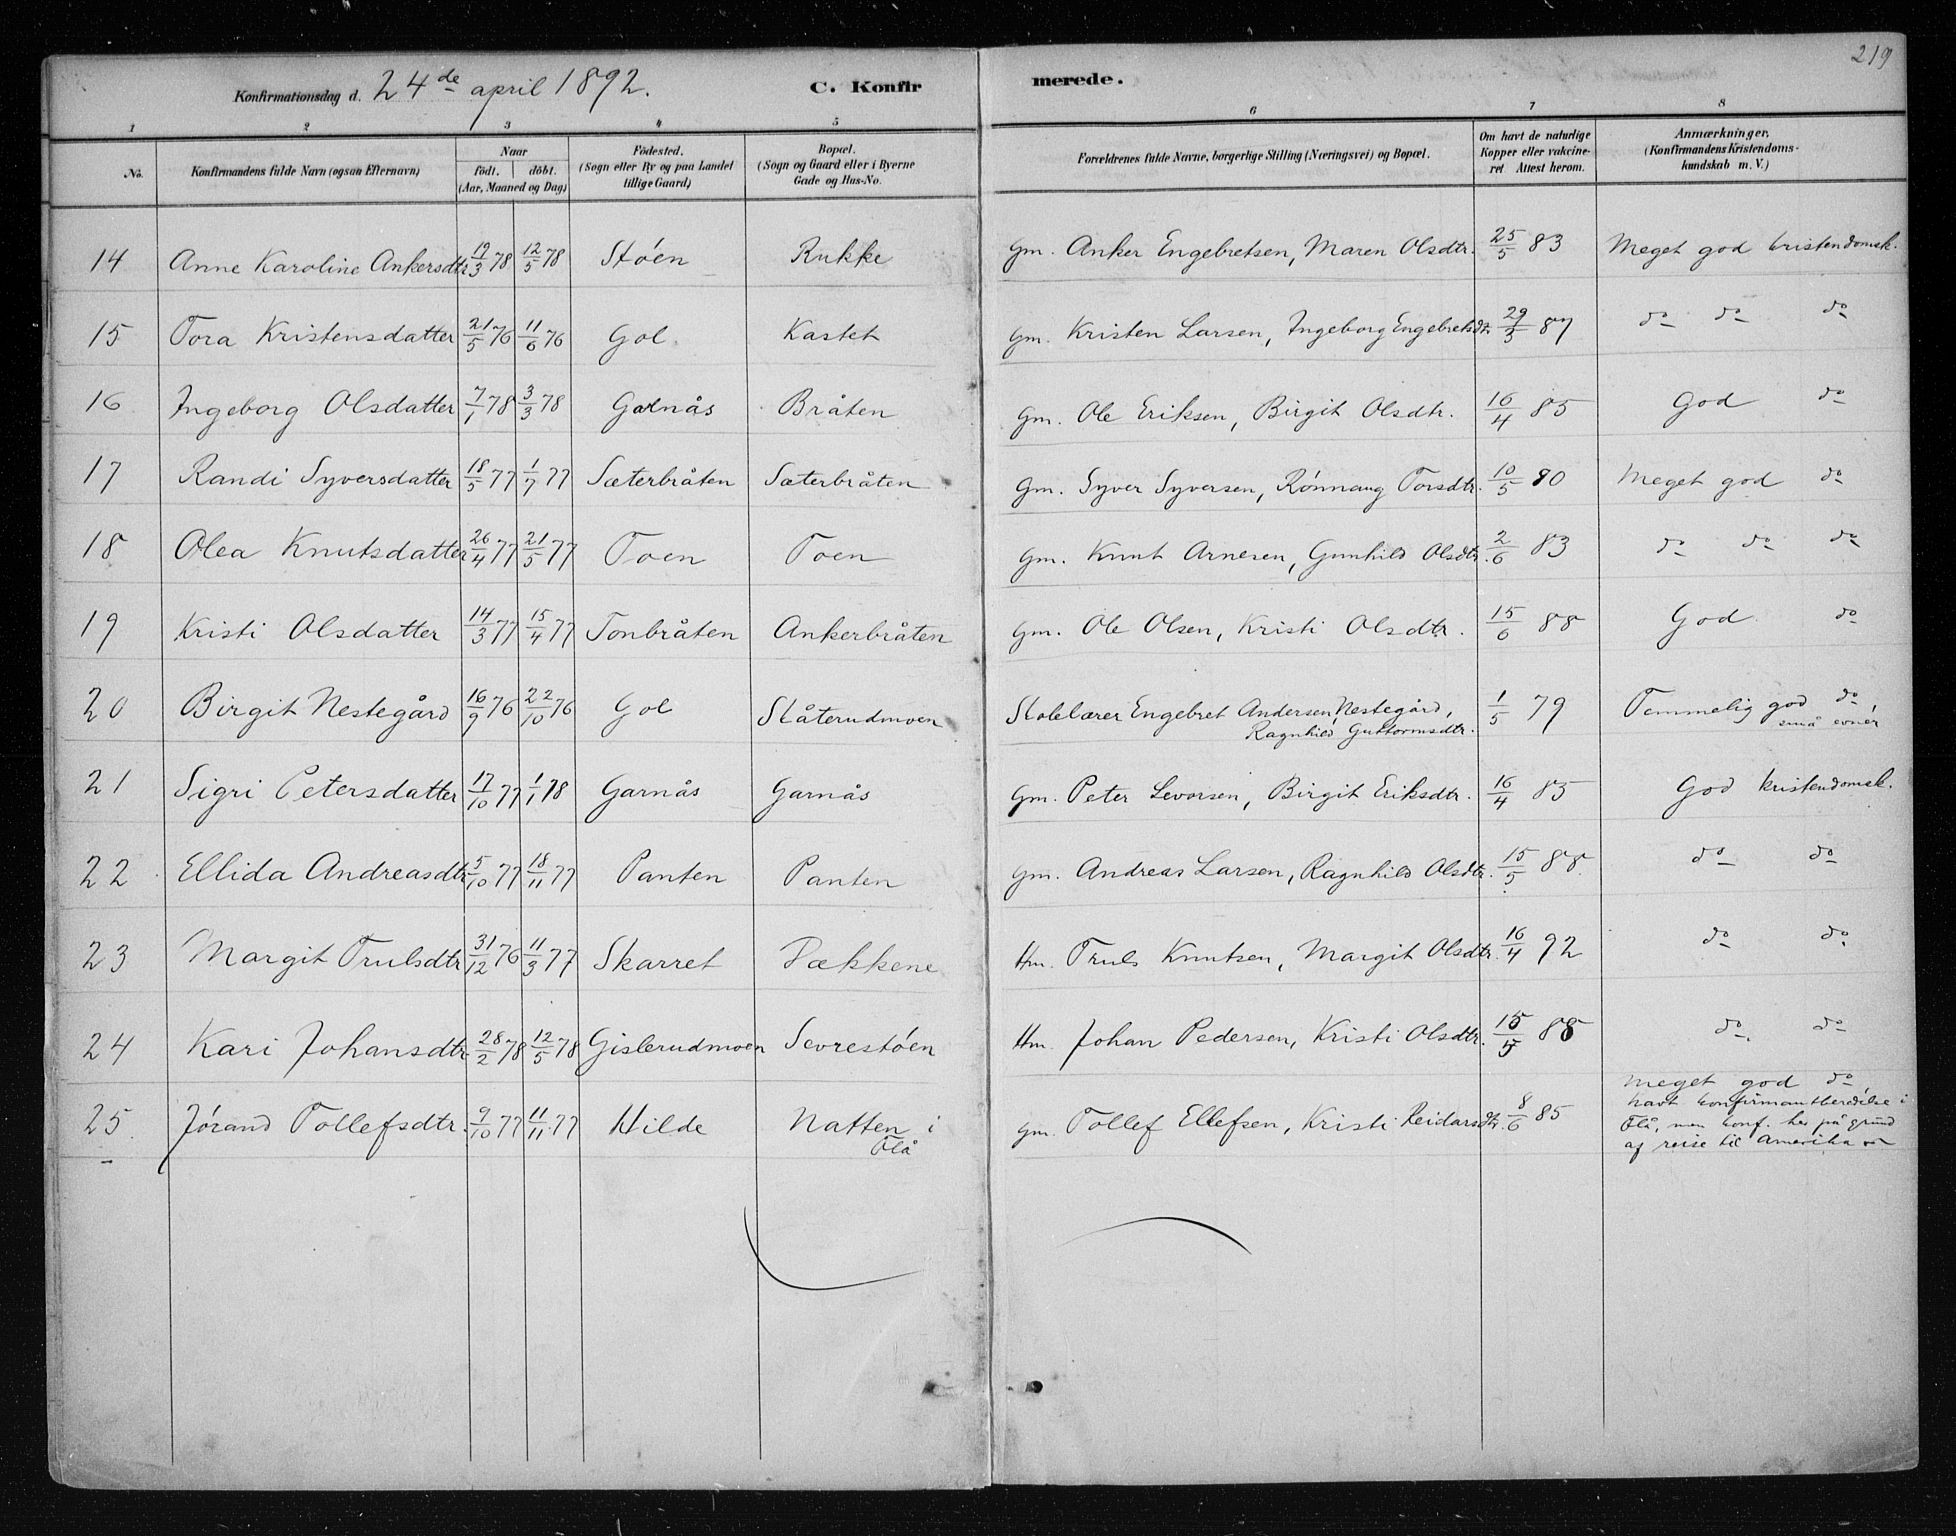 219
Konfirmationsdag d. 24de april 1892. C. Konfir merede.
1 2 3 4 5 6 7 8
No. Konfirmandens fulde Navn (ogsaa Efternavn) Naar födt. döbt. (Aar, Maaned og Dag) Födested. (Sogn eller By og paa Landet tillige Gaard) Bopæl. (Sogn og Gaard eller i Byerne Gade og Hus-No. Forældrenes fulde Navne, borgerlige Stilling (Næringsvei) og Bopæl. Om havt de naturlige Kopper eller vakcineret Attest herom. Anmærkninger, (Konfirmandens Kristendomskundskab m. V.)
14 Anne Karoline Ankersdtr 19/3 78 12/5 78 Støen Rukke Gm. Anker Engebretsen, Maren Olsdtr. 25/5 83 Meget god kristendomsk.
15 Tora Kristensdatter 21/5 76 11/6 76 Gol Kastet Gm. Kristen Larsen, Ingeborg Engebretsdtr 29/3 87 do do do
16 Ingeborg Olsdatter 7/1 78 3/3 78 Garnås Bråten Gm. Ole Eriksen, Birgit Olsdtr. 16/4 85 God do
17 Randi Syversdatter 18/5 77 1/7 77 Sæterbråten Sæterbråten Gm. Syver Syversen, Rønnaug Torsdtr. 10/5 80 Meget god do
18 Olea Knutsdatter 26/4 77 21/5 77 Toen Toen Gm. Knut Arnesen, Gunhild Olsdtr. 2/6 83 do do do
19 Kristi Olsdatter 14/3 77 15/4 77 Tonbråten Ankerbråten Gm. Ole Olsen, Kristi Olsdtr. 15/6 88 God do
20 Birgit Nestegård 16/9 76 22/10 76 Gol Slåterudmoen Skolelærer Engebret Andersen Nestegård, 1/5 79 Temmelig god do
Ragnhild Guttormsdtr. små evner
21 Sigri Petersdatter 17/10 77 1/1 78 Garnås Garnås Gm. Peter Levorsen, Birgit Eriksdtr. 16/4 85 God kristendomsk.
22 Ellida Andreasdtr 5/10 77 18/11 77 Panten Panten Gm. Andreas Larsen, Ragnhild Olsdtr. 15/5 88 do do
23 Margit Trulsdtr 31/12 76 11/3 77 Skarret Pækkene Hm. Truls Knutsen, Margit Olsdtr. 16/4 92 do do
24 Kari Johansdtr. 28/2 78 12/5 78 Gislerudmoen Sevrestøen Hm. Johan Pedersen, Kristi Olsdtr. 15/5 88 do do
25 Jørand Tollefsdtr. 9/10 77 11/11 77 Hilde Natten i Flå Gm. Tollef Ellefsen, Kristi Reidarsdtr. 8/6 85 Meget god do
havt konfirmantberedelse i
Flå, men konf. her på grund
af reise til Amerika